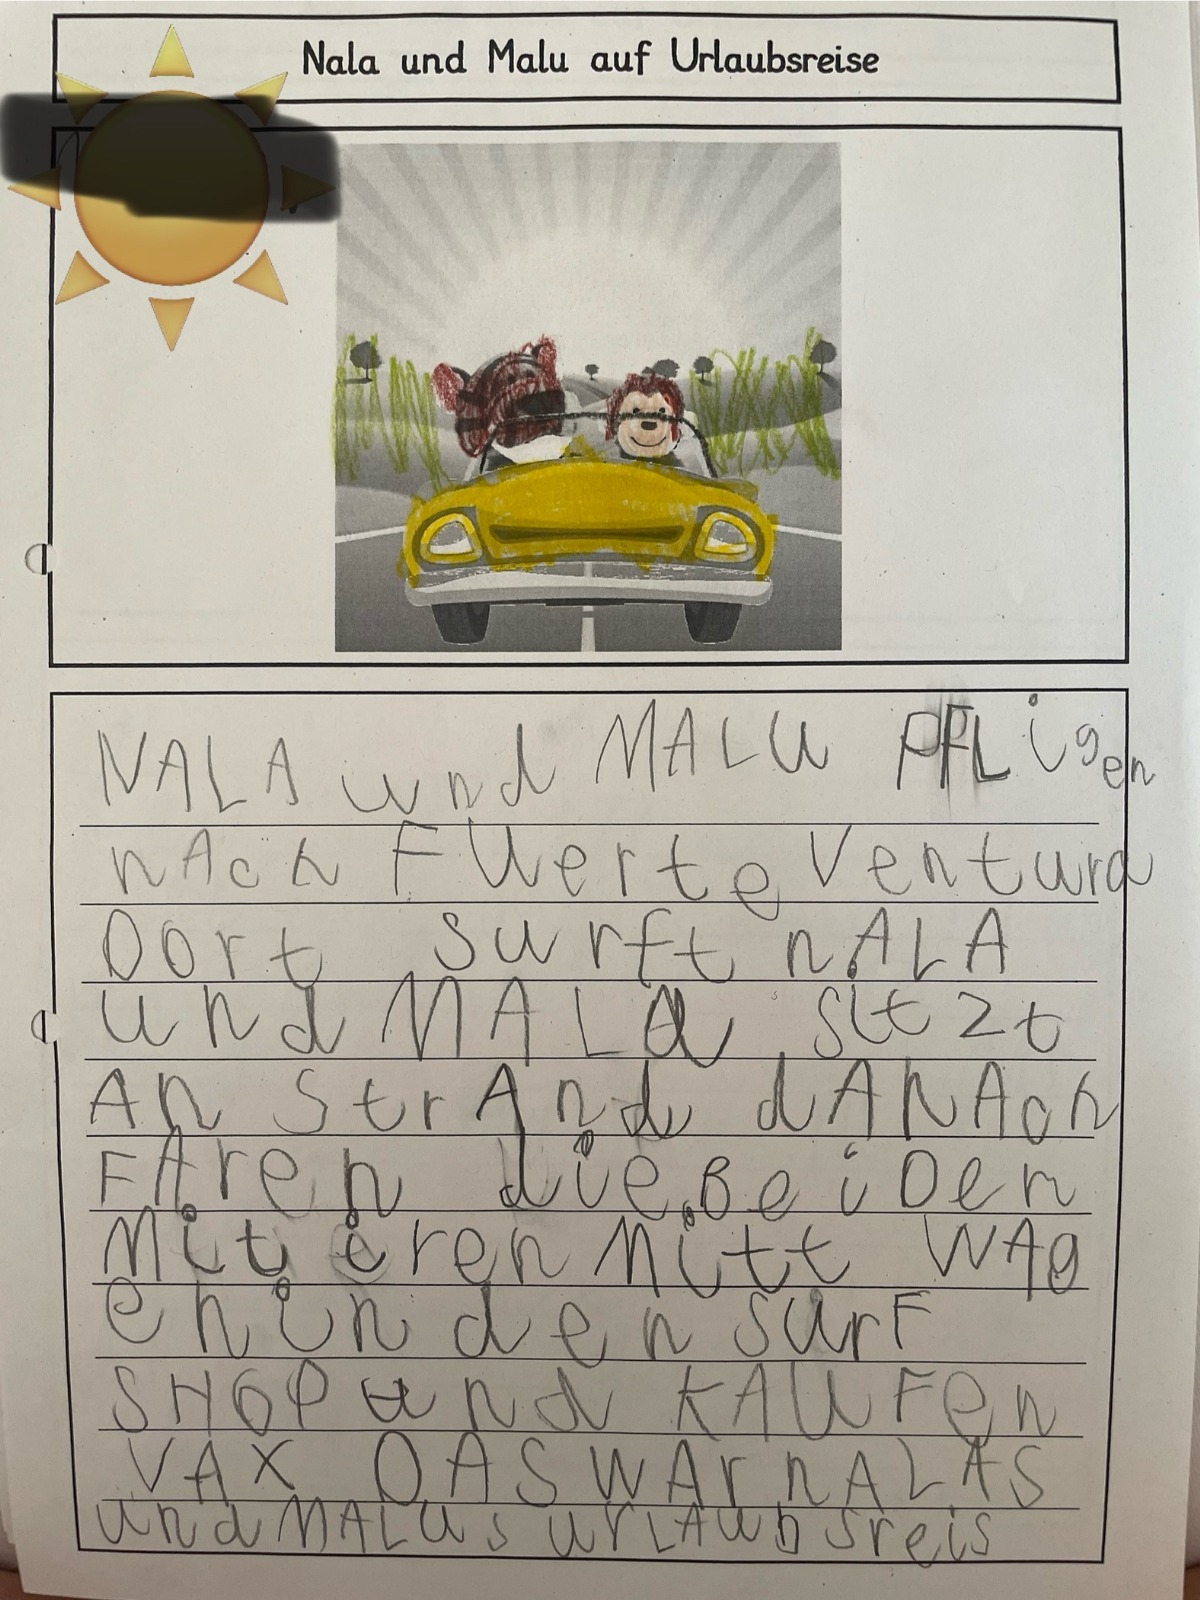 Nala und Malu auf Urlaubsreise
NALA und MALU PFLigen
nAch FUerte Ventura
Dort surft nALA
und MALU sitzt
An StrAnd dANAch
FAren die Beiden
Mit iren Mitt WAg
en in den surF
SHOP und KAUFen
VAX DAS WAr nALAS
und MALUs UrLAubsreis